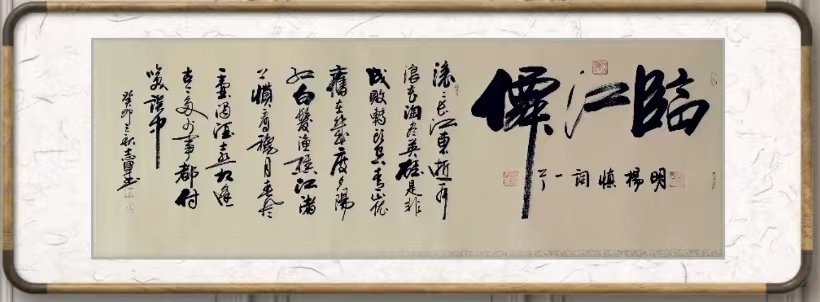 臨江僊
明楊慎詞一首
滾々長江東逝水
浪花淘盡英雄是非
成敗轉頭空青山依
舊在幾度夕陽
紅白髮漁樵江渚
上慣看秋月春風
一壺濁酒喜相逢
古今多少事都付
笑談中
癸卯之秋